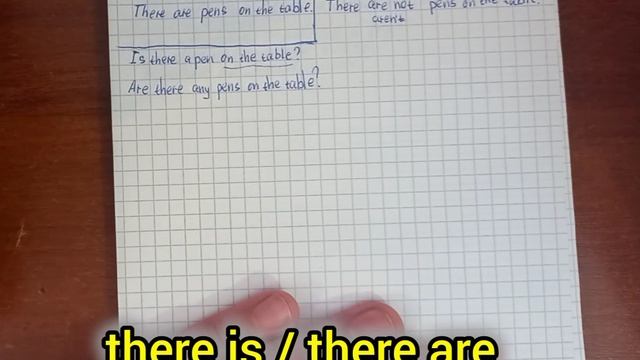 There are pens on the table.
There are not pens on the table.
aren't
Is there a pen on the table?
Are there any pens on the table?
there is / there are